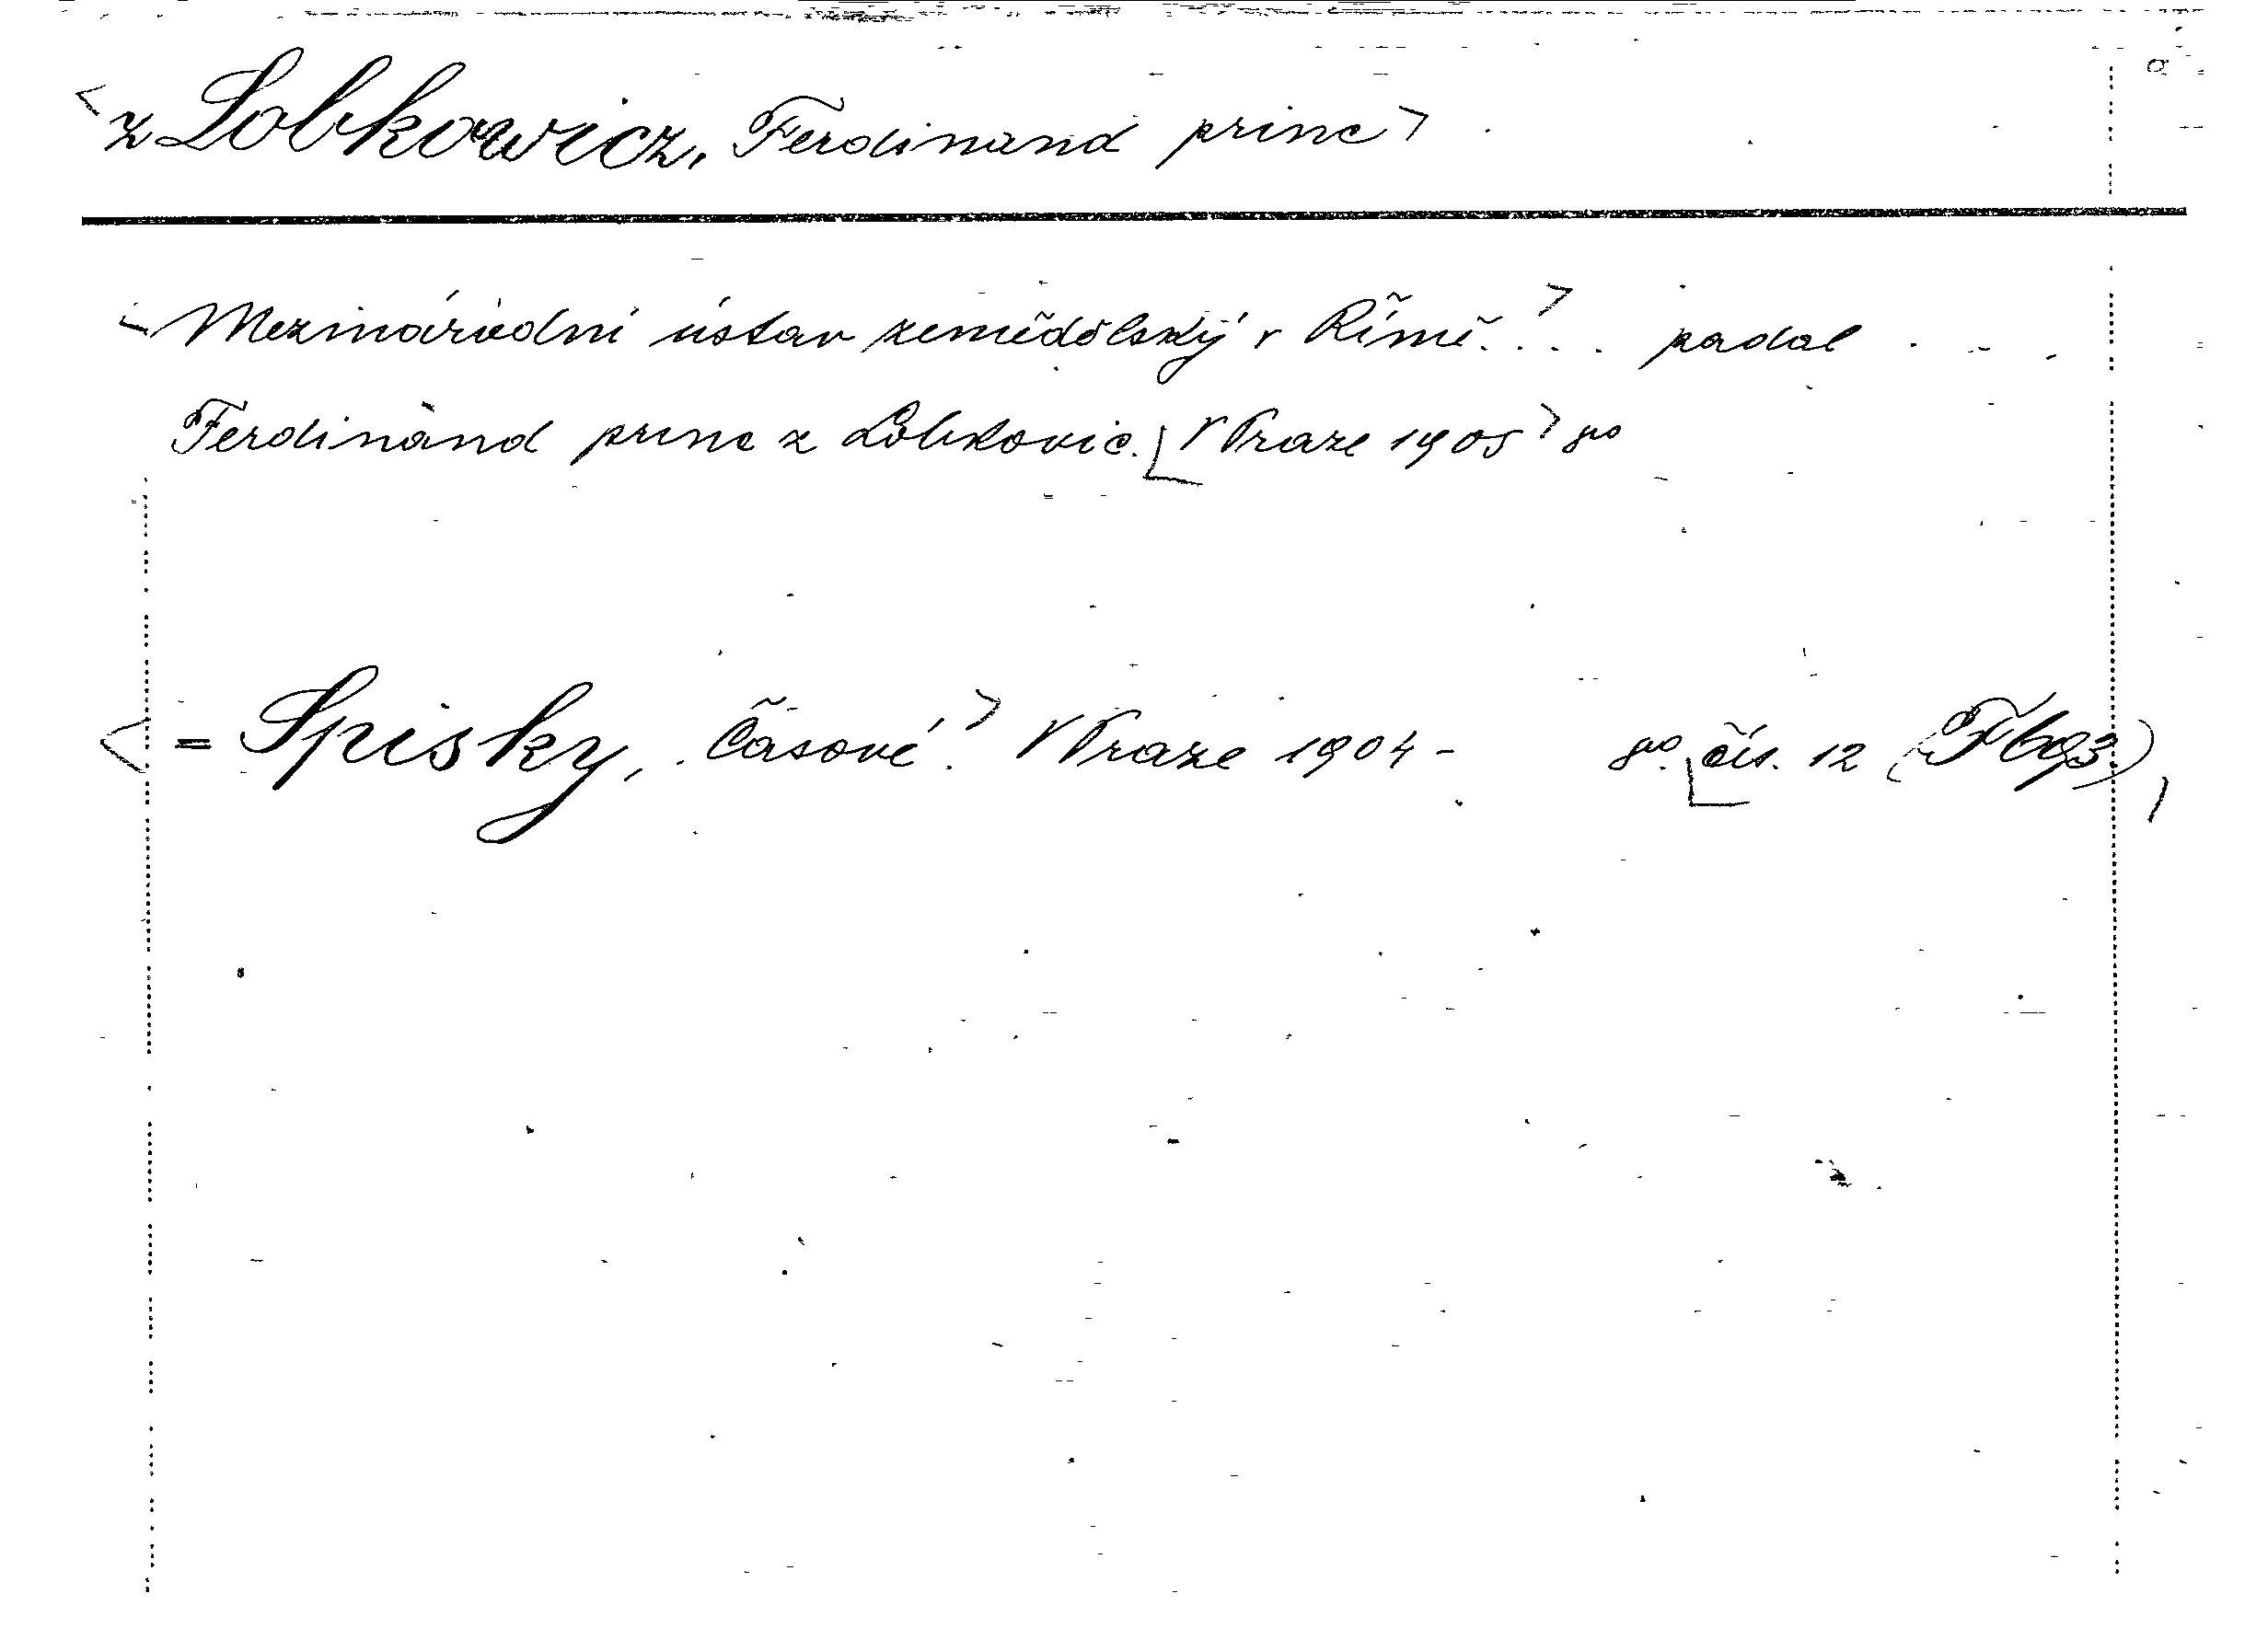 <z Lobkowicz, Ferdinand princ>
<Mezinárodní ústav zemědělský v Římě.>... podal ...
Ferdinand princ z Lobkovic. [V Praze 1905> 8º
<= Spisky, Časové.> V Praze 1904 - 8º. [čís. 12 (F 693),